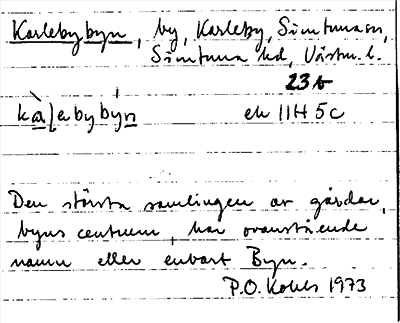 Karlebybyn, by, Karleby, Simtuna sn,
Simtuna hd, Västm. l.
23b
kàlebybýn ek 11H 5c
Den största samlingen av gårdar,
byns centrum, har ovanstående
namn eller enbart Byn.
P.O. 1973